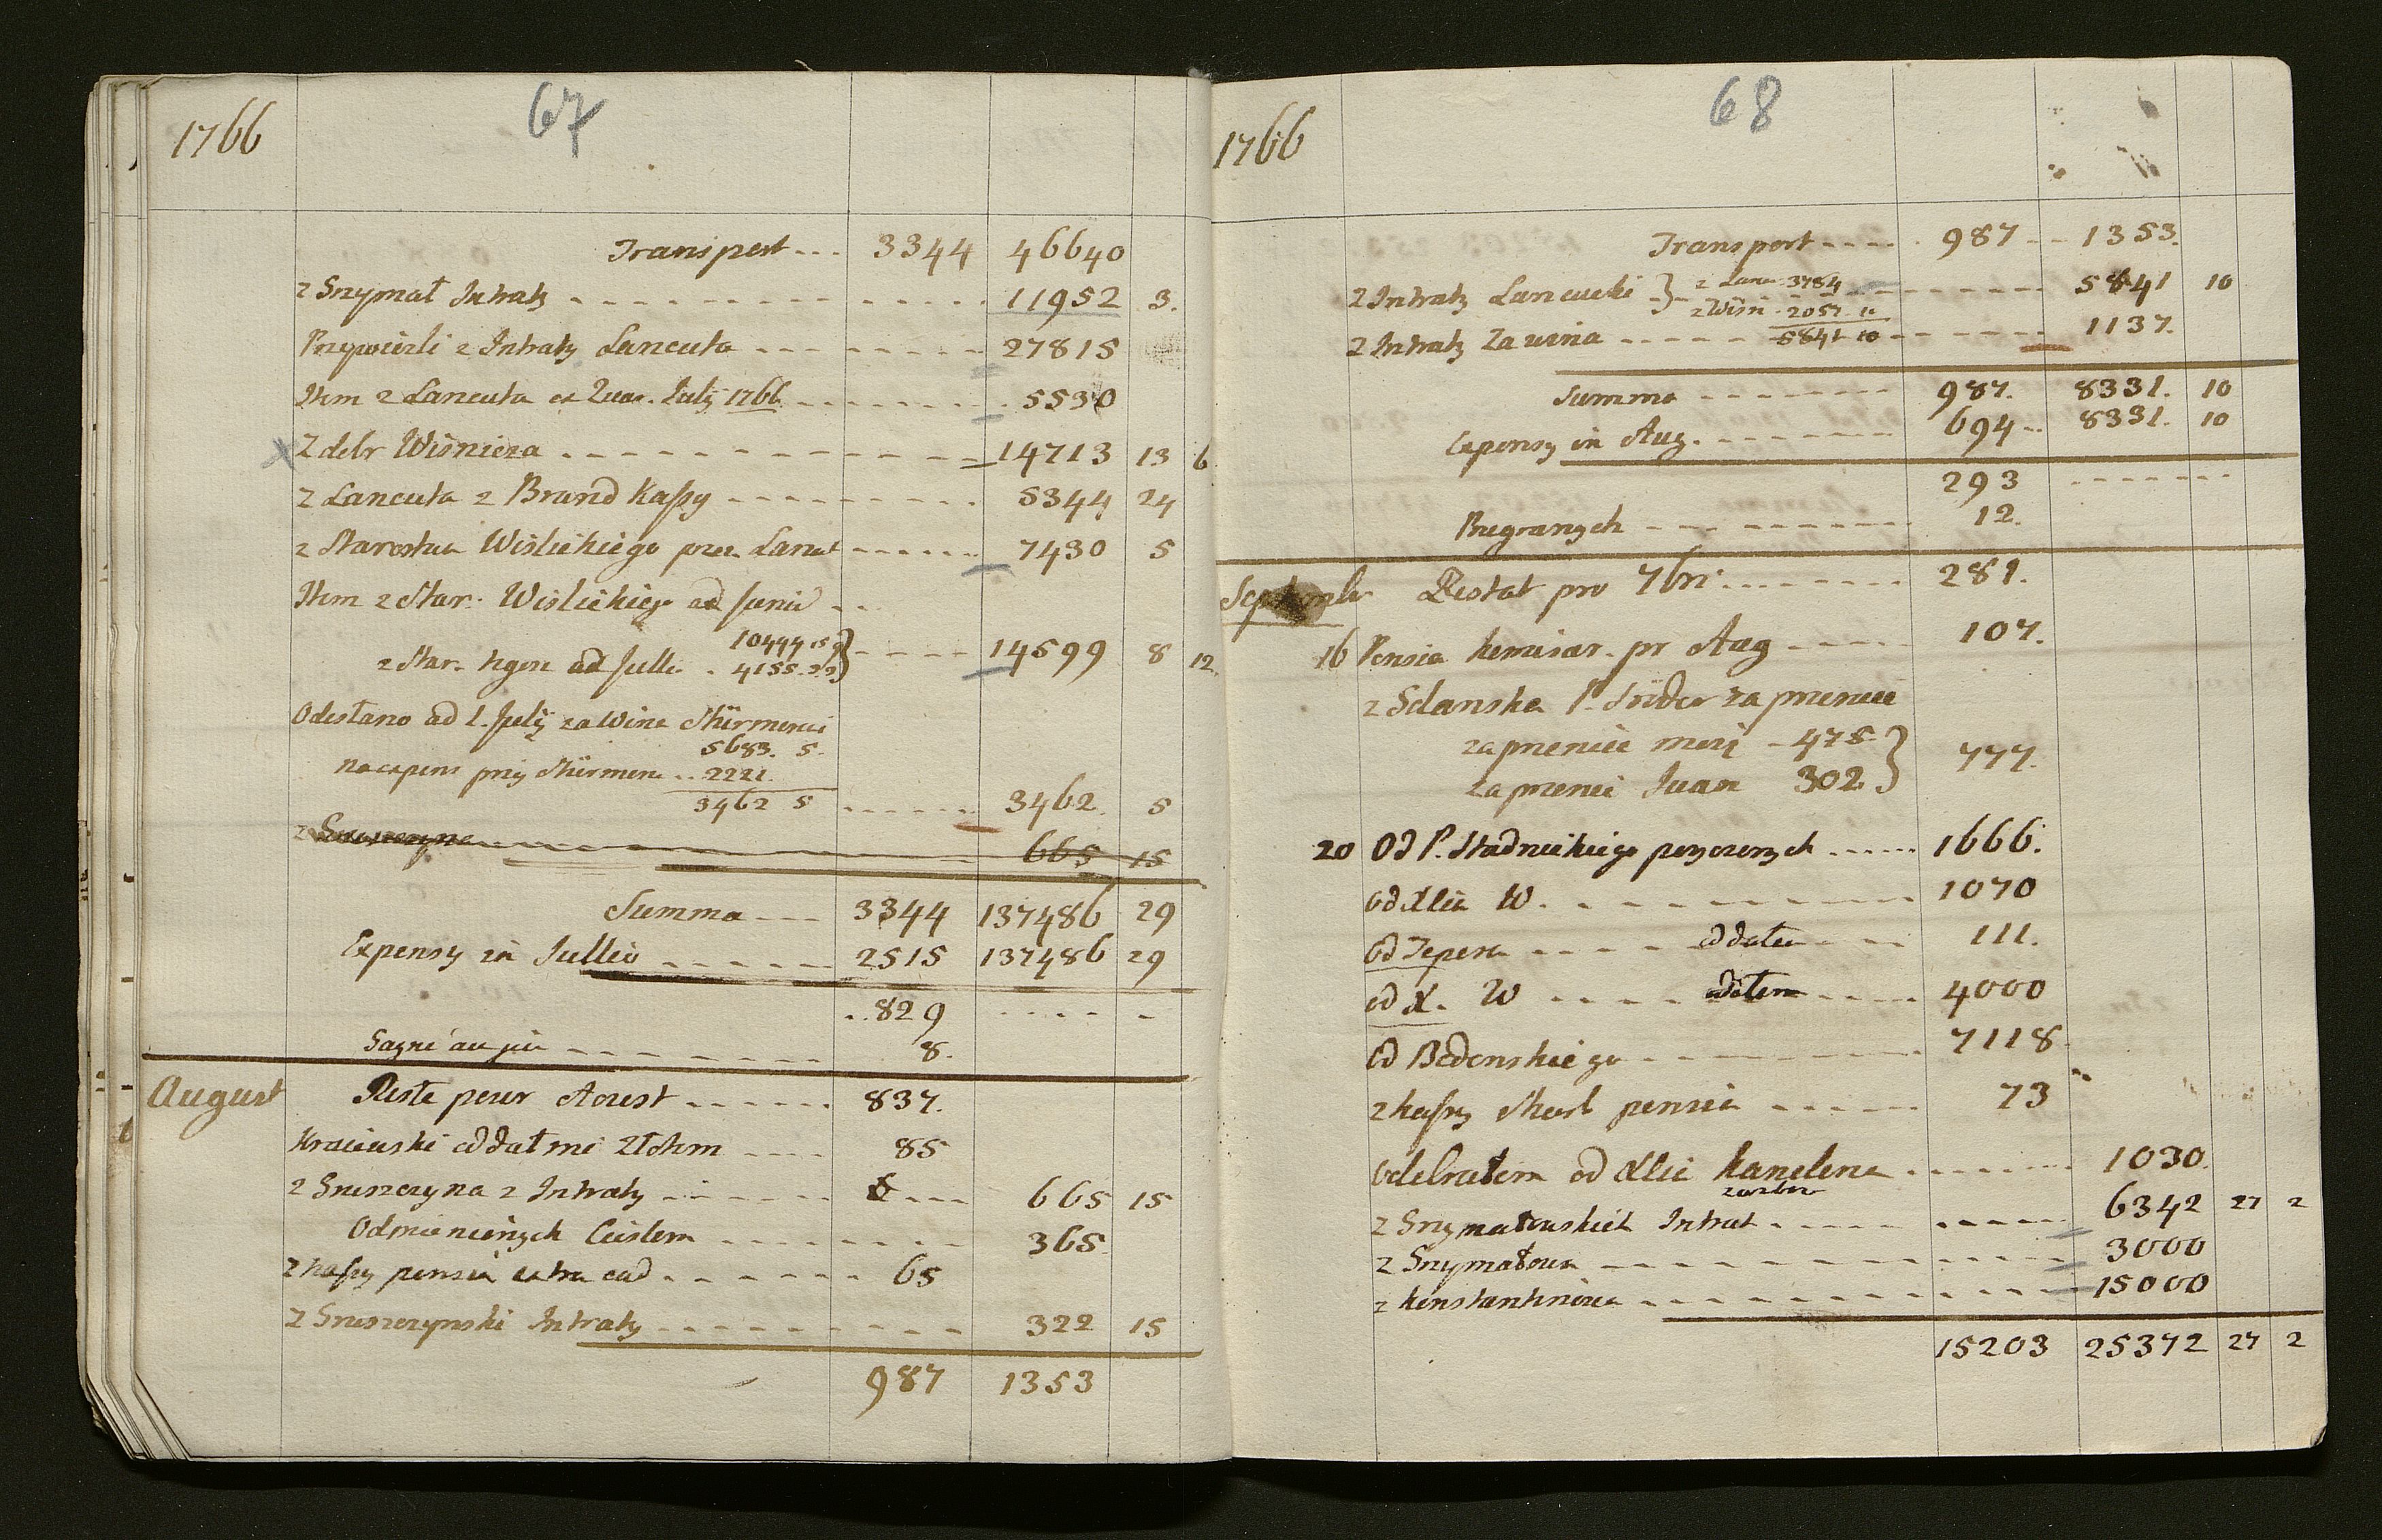 1766
67
Transport 3344 46640
z Szymał Intraty 11952 3.
Przywiezli z Intraty Lancuta 27815
Itm z Lancuta ex Quar. Julÿ 1766 5530
Z dobr Wisnicza 14713 13 6
z Lancuta z Brand Kassy 5344 24
z Starostwa Wislickiego przez Lancut 7430 5
Itm z Star. Wislickieg ad Juniu
10444 15
z Star. tegoz ad Julli 4155. 23 } 14599 8 12
Odesłano ad 1. Julÿ za Wina Stürmerui
5683. 5
na expens przy Stürmeru 2221.
3462 5 3462. 5
z Suszczyna 665 15
Summa 3344 137486 29
Expensy in Jullio 2515 137486 29
829
Gagné au jeu 8.
August
Reste pour Aoust 837.
Kraiewski oddał mi Złotem 85
z Suszczyna z Intraty 665 15
Odmienionych Cuislem 365
z kassy pensia extra cud 65
z Suszczynski Intraty 322 15
987 1353
1766
68
Transport 987 1353.
z Intraty Lancucki } z Lanc 3784 5841 10
z Wisn 2057. 10
z Intraty za wina 5841 10 1137.
Summa 987. 8331. 10
Expensy in Aug. 694 8331. 10
293
Przegranych 12.
Septembr
Restat pro 7bri 281.
16 Pensia komisar. pr Aug 107.
z Gdanska P. Srider za pszenice
za pszenice moię 475
za pszenic Juan 302 } 777.
20 Od P. Stadnickiego pozyczonych 1666.
od Xcia W. 1070
od Tepera oddałem 111.
od X. W oddałem 4000
od Bedonskiego 7118
z kassy Skarb pensia 73
Odebrałem od Xcie kanclerza 1030.
z Szymałowskich Intrat 6342 27 2
z Szymałowa 3000
z Konstantinowa 15000
15203 25372 27 2